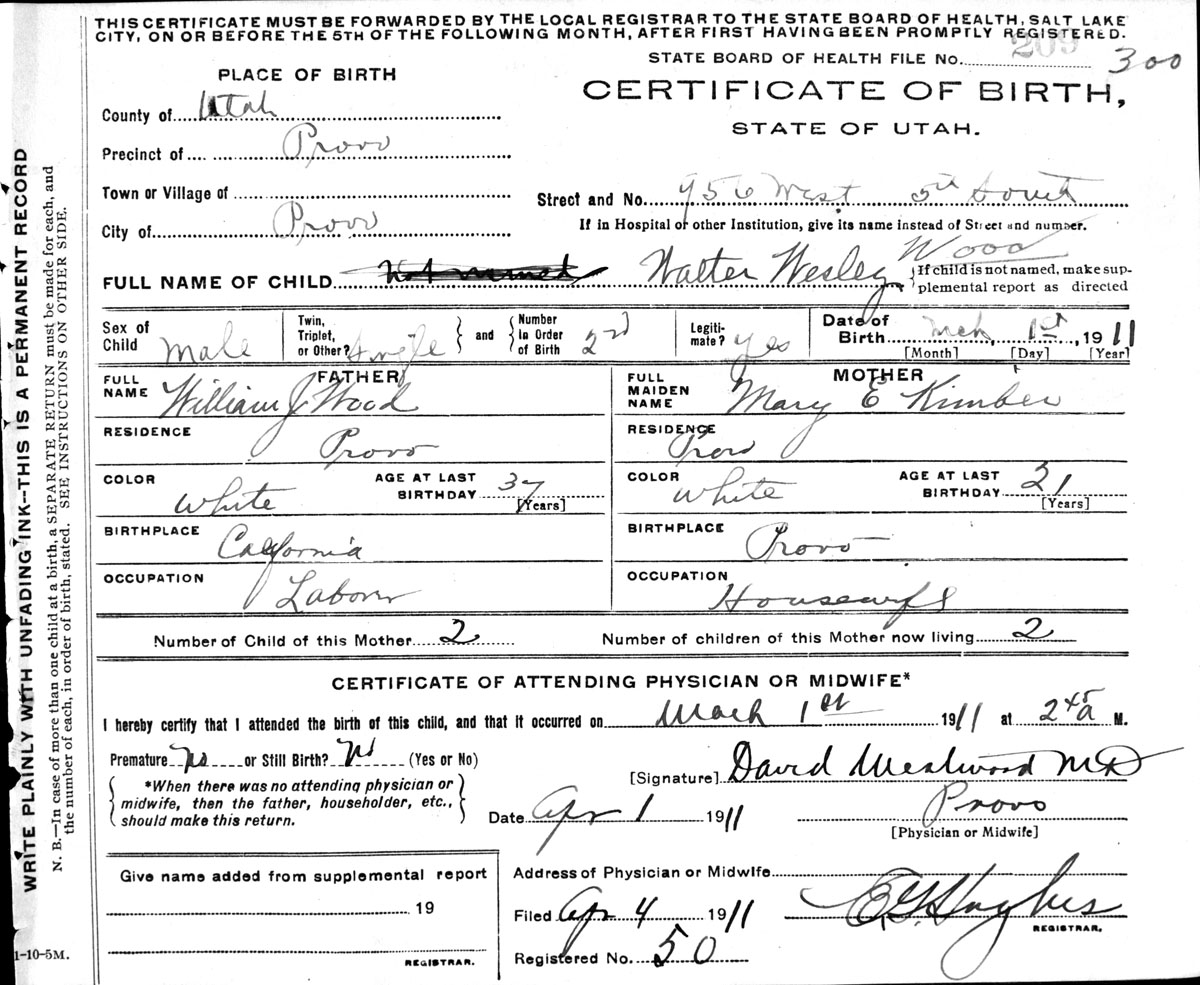 THIS CERTIFICATE MUST BE FORWARDED BY THE LOCAL REGISTRAR TO THE STATE BOARD OF HEALTH, SALT LAKE
CITY, ON OR BEFORE THE 5TH OF THE FOLLOWING MONTH, AFTER FIRST HAVING BEEN PROMPTLY REGISTERED.
STATE BOARD OF HEALTH FILE No. 209 300
PLACE OF BIRTH
CERTIFICATE OF BIRTH,
STATE OF UTAH.
County of Utah
Precinct of Provo
Town or Village of
Street and No. 956 West 5th South
City of Provo
If in Hospital or other Institution, give its name instead of Street and number.
FULL NAME OF CHILD Not named Walter Wesley Wood
If child is not named, make sup-
plemental report as directed
Sex of Child Male
Twin, Triplet, or Other? Single and Number In Order of Birth 2nd
Legiti-mate? Yes
Date of Birth Mch 1st, 1911
[Month] [Day] [Year]
FATHER
FULL NAME William J Wood
MOTHER
FULL MAIDEN NAME Mary E Kimber
RESIDENCE Provo
RESIDENCE Provo
COLOR White AGE AT LAST BIRTHDAY 37 [Years]
COLOR White AGE AT LAST BIRTHDAY 21 [Years]
BIRTHPLACE California
BIRTHPLACE Provo
OCCUPATION Laborer
OCCUPATION Housewife
Number of Child of this Mother 2 Number of children of this Mother now living 2
CERTIFICATE OF ATTENDING PHYSICIAN OR MIDWIFE*
I hereby certify that I attended the birth of this child, and that it occurred on Mach 1st 1911 at 2 45 a M.
Premature No or Still Birth? No (Yes or No)
*When there was no attending physician or
midwife, then the father, householder, etc.,
should make this return.
[Signature] David Westwood MD
Date Apr 1 1911
Provo
[Physician or Midwife]
Give name added from supplemental report
19
REGISTRAR.
Address of Physician or Midwife
Filed Apr 4 1911
E G Hughes
REGISTRAR.
Registered No. 50
WRITE PLAINLY WITH UNFADING INK--THIS IS A PERMANENT RECORD
N. B.—In case of more than one child at a birth, a SEPARATE RETURN must be made for each, and
the number of each, in order of birth, stated. SEE INSTRUCTION ON OTHER SIDE.
1-10-5M.